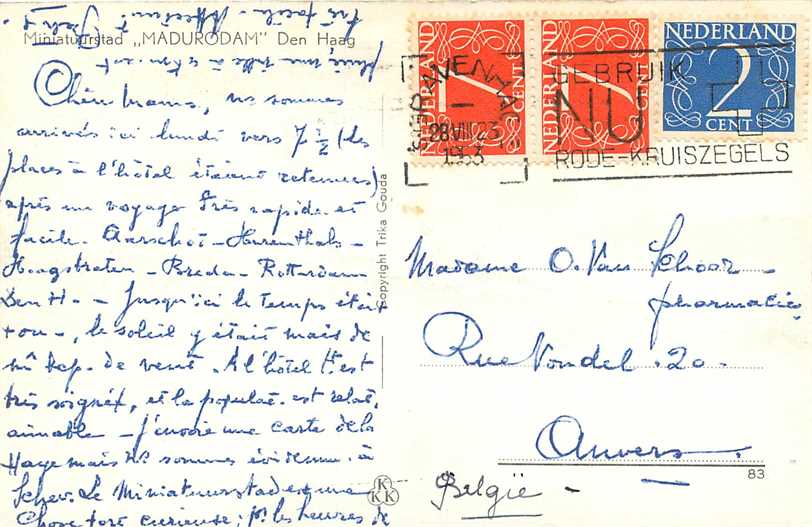 Miniatuurstad „MADURODAM" Den Haag
Chère Mams, ns sommes
arrivés ici lundi vers 7 ½ (les
places à l'hôtel étaient retenues)
après un voyage très rapide et
facile. Aarschot - Herenthals -
Hoogstraten - Breda - Rotterdam
Den H. - Jusqu'ici le temps était
le soleil y était mais de
de vent. A l'hôtel tt est
très soigné, et la populat. est relat.
aimable - J'envoie une carte de la
Haye mais ns sommes évidemm. à
Schev. Le Miniatuurstad est une
chose fort curieuse: pr les heures de
Copyright Trika Gouda
NEDERLAND
CENT
NEDERLAND
CENT
NEDERLAND
2
CENT
'S-GRAVENHAGE
28 VIII 23
1953
GEBRUIK
NU
RODE-KRUISZEGELS
Madame O. Van Schoor -
pharmacie
Rue Vondel . 20 -
Anvers.
83
België -
K
K K